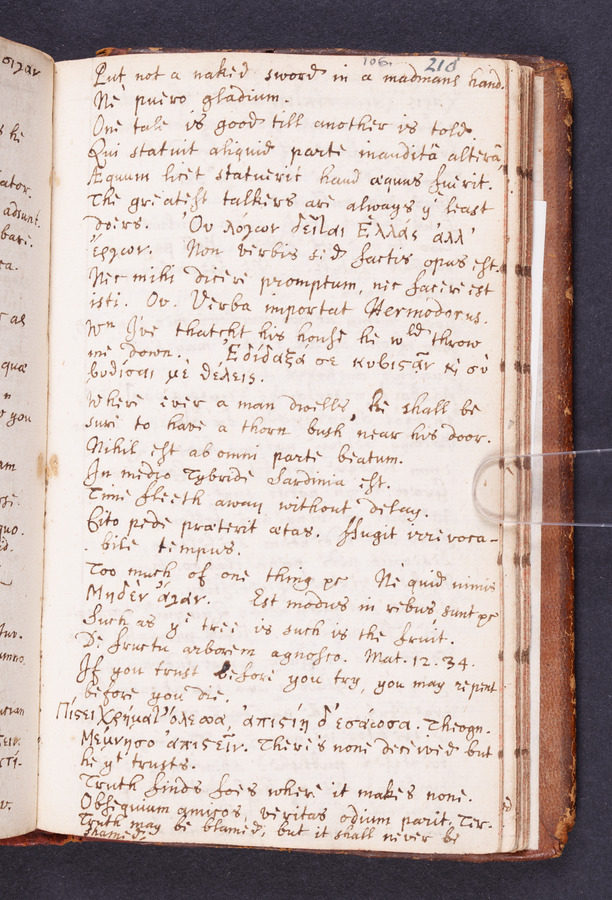 106. 210
Put not a naked sword in a madmans hand.
Ne puero gladium.
One tale is good till another is told.
Qui statuit aliquid parte inauditâ alterâ,
Æquum licet statuerit haud æquus fuerit.
The greatest talkers are always yᵉ least
doers. Ὀυ λόγων δεῖται Ἑλλάς ἀλλ'
ἔργων. Non verbis sed factis opus est.
Nec mihi dicere promptum, nec facere est
isti. Ov. Verba importat Hermodorus.
Wⁿ I've thatcht his house he wᵈ throw
me down. Ἐδίδαξά σε κυβιςᾶν κὶ σὺ
βυθίσαι μὲ θέλεις.
Where ever a man dwells, he shall be
sure to have a thorn bush near his door.
Nihil est ab omni parte beatum.
In medio Tybride Sardinia est.
Time fleeth away without delay.
Cito pede præterit ætas. ffugit irrevoca-
bile tempus.
Too much of one thing &c Ne quid nimis
Μηδὲν ἄγαν. Est modus in rebus, sunt &c
Such as yᵉ tree is such is the fruit.
De fructu arborem agnosco. Mat. 12. 34.
If you trust before you try, you may repent
before you die.
Πίςει Χρήματ' ὄλεσσα, ἀπιςίῃ δ' ἐσάωσα. Theogn.
Μέμνησο ἀπιςεῖν. There's none deceived but
he yᵗ trusts.
Truth finds foes where it makes none.
Obsequium amicos, veritas odium parit. Ter.
Truth may be blamed, but it shall never be
shamed.